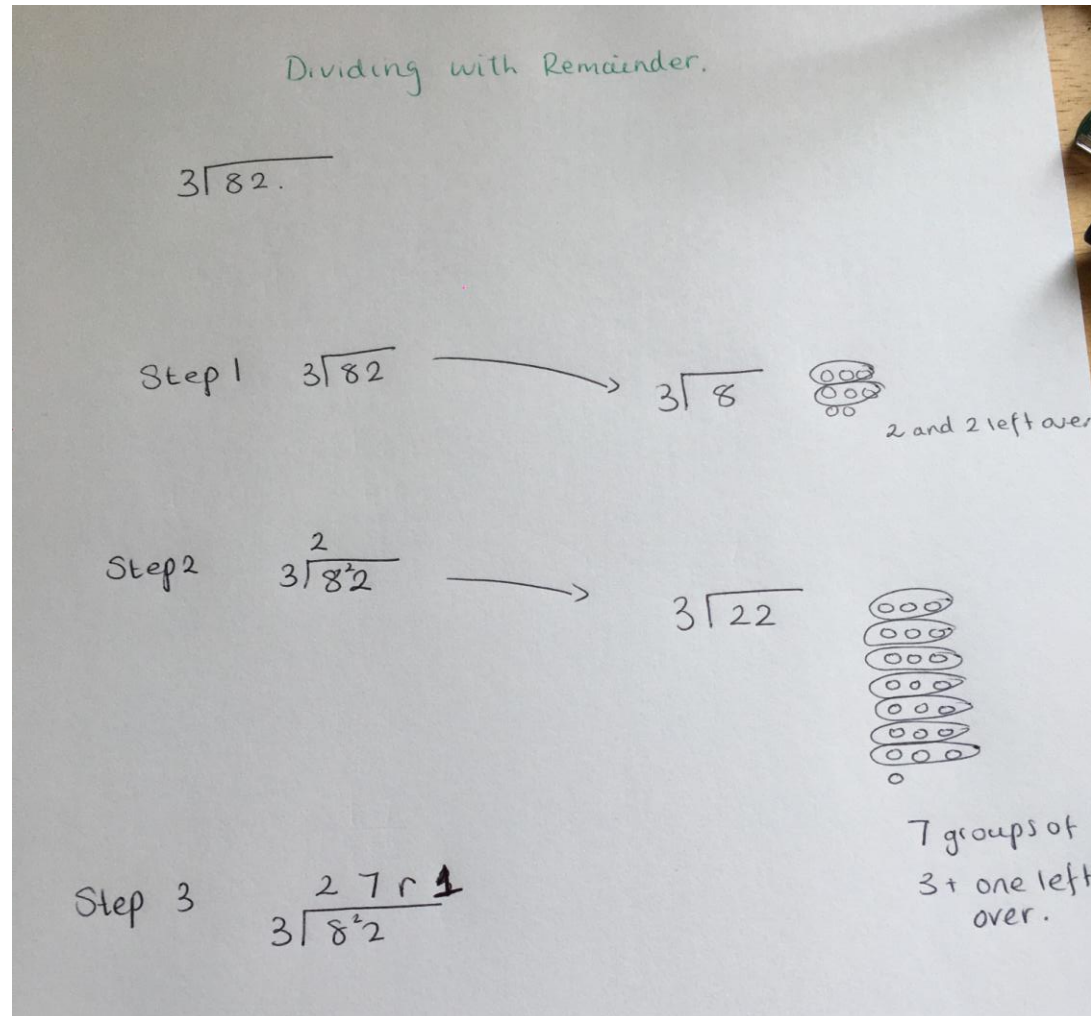 Dividing with Remainder.
3⟌82.
Step 1 3⟌82 3⟌8
2 and 2 left over
2
Step 2 3⟌8²2 3⟌22
7 groups of
3 + one left
over.
2 7 r 1
Step 3 3⟌8²2